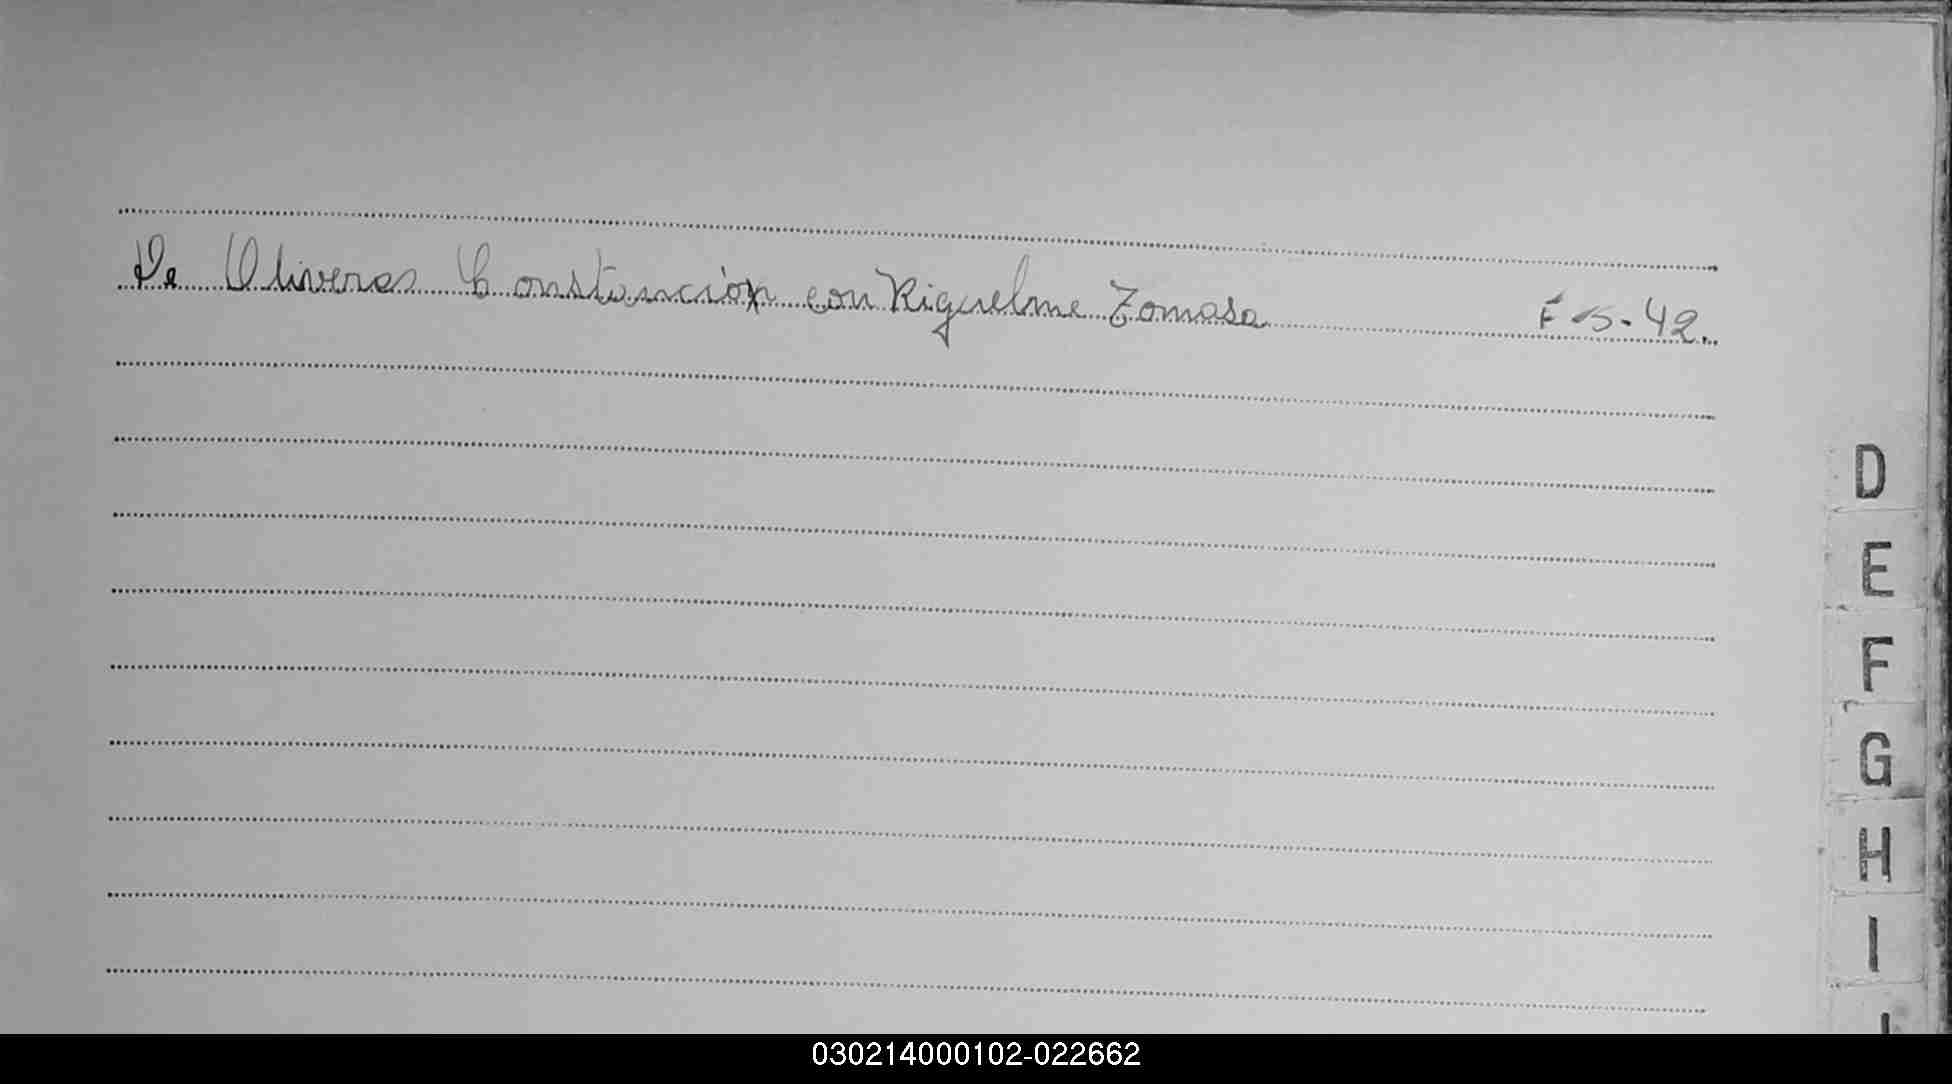 De Oliveras Constancio con Riguelme Tomasa F-5-42.
D
E
F
G
H
I
030214000102-022662